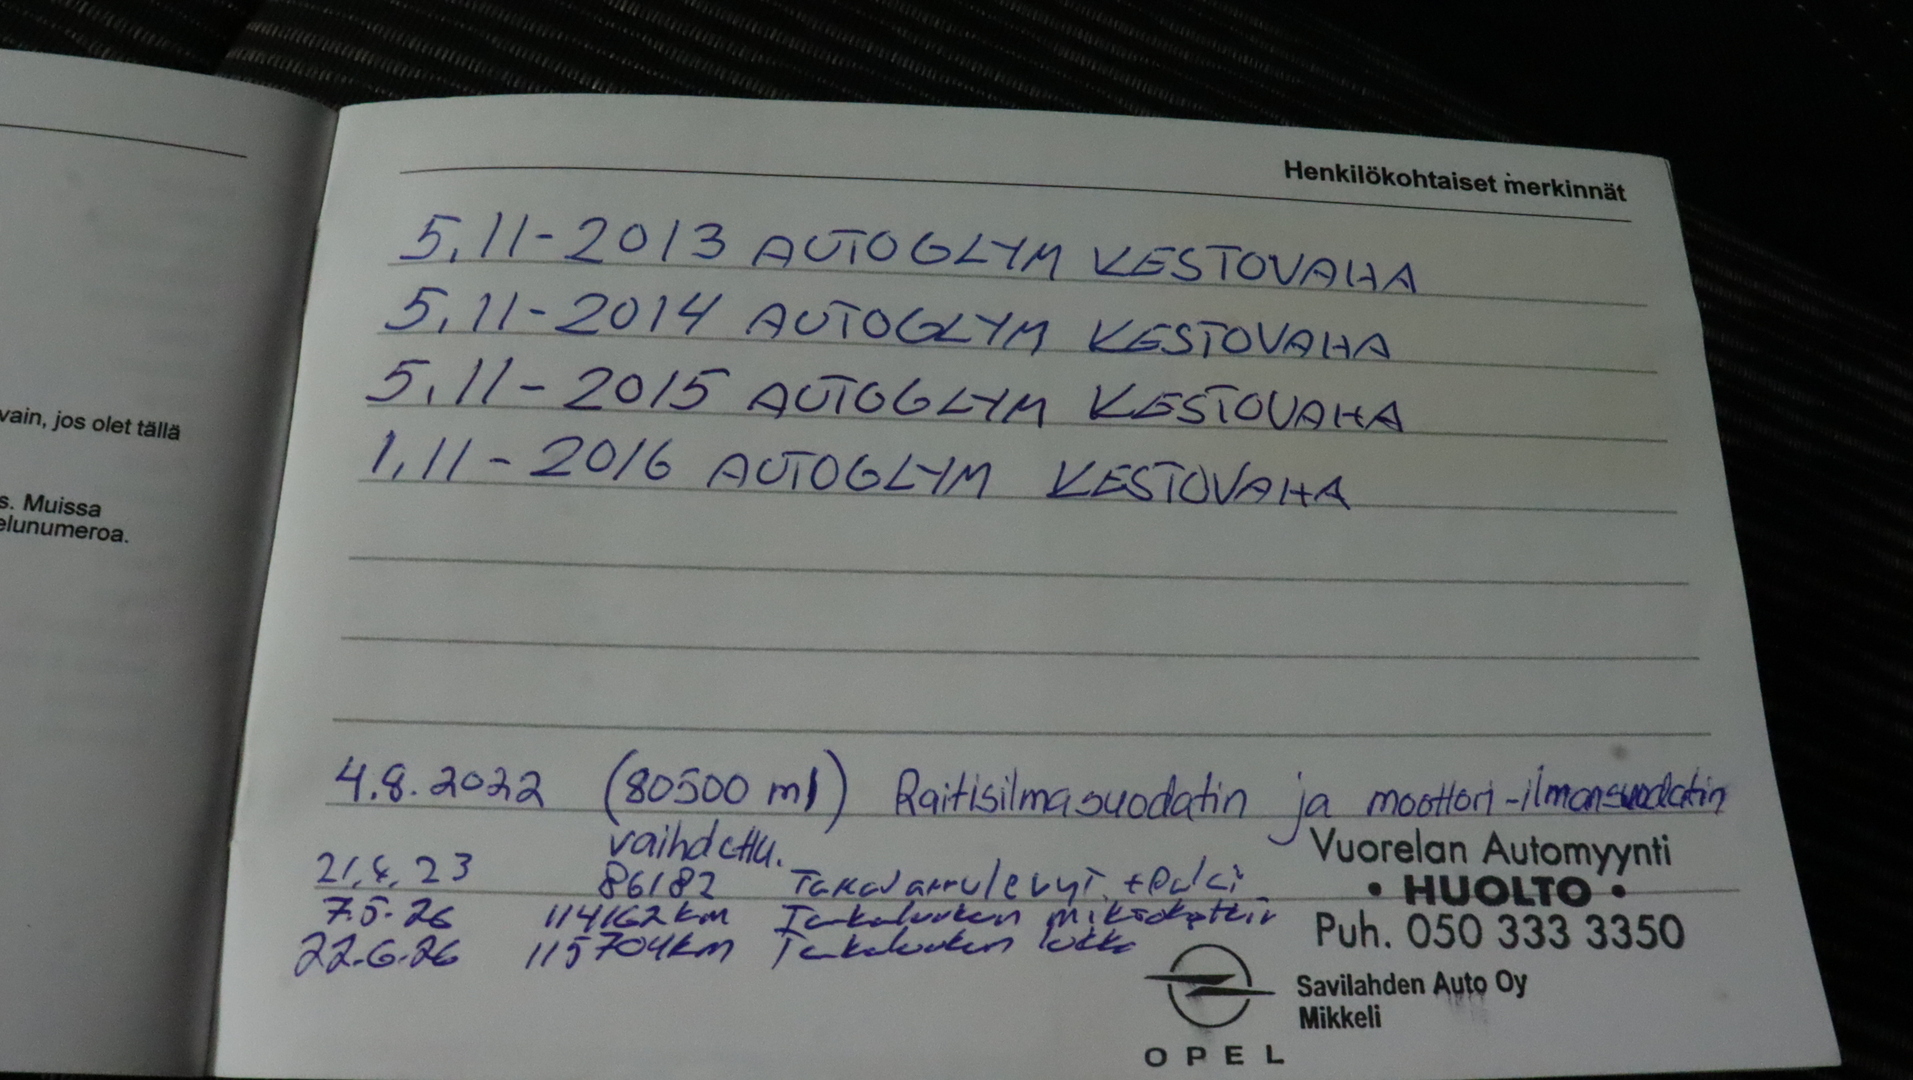 Henkilökohtaiset merkinnät
5.11-2013 AUTOGLYM KESTOVAHA
5.11-2014 AUTOGLYM KESTOVAHA
5.11-2015 AUTOGLYM KESTOVAHA
1.11-2016 AUTOGLYM KESTOVAHA
vain, jos olet tällä
s. Muissa
elunumeroa.
4.8.2022 (80500 ml) Raitisilmasuodatin ja moottori-ilmansuodatin
vaihdettu.
21.4.23 86182 Takajarrulevyt + palat
7.5.26 114162km Takaluukun mikrokytkin
22.6.26 115704km Takaluukun lukko
Vuorelan Automyynti
• HUOLTO •
Puh. 050 333 3350
Savilahden Auto Oy
Mikkeli
OPEL